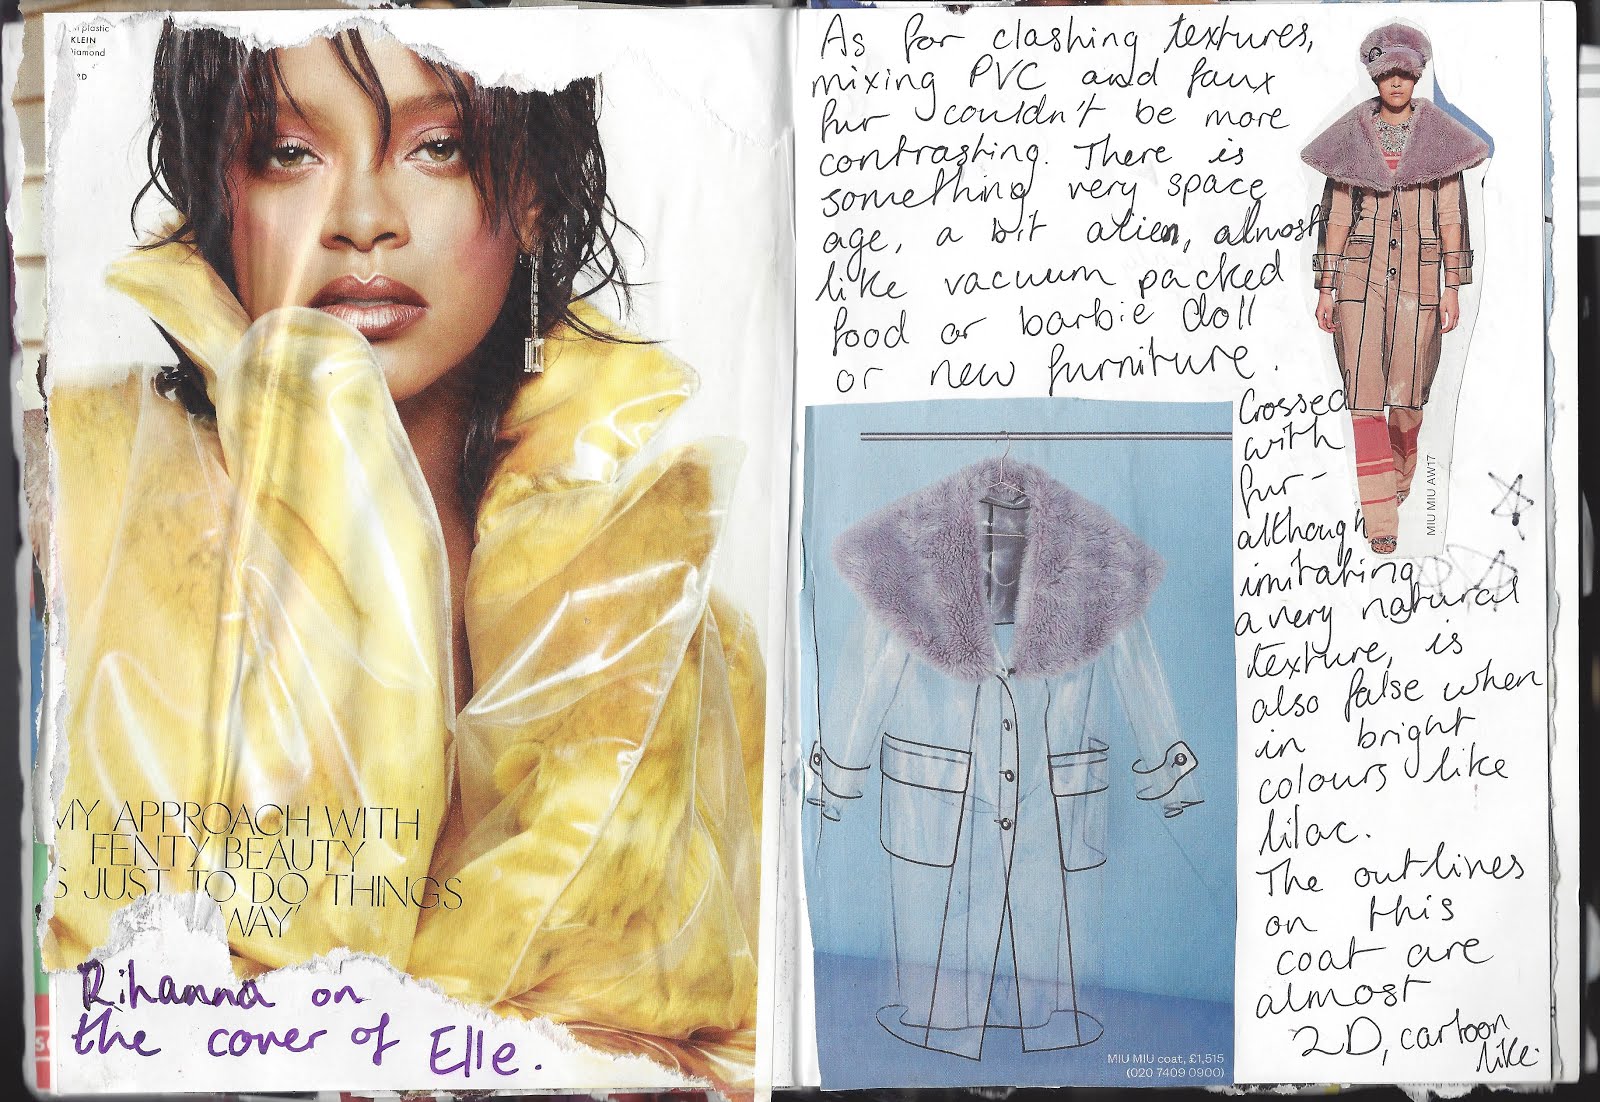 plastic
KLEIN
iamond
RD
MY APPROACH WITH
FENTY BEAUTY
S JUST TO DO THINGS
WAY'
Rihanna on
the cover of Elle.
As for clashing textures,
mixing PVC and faux
fur couldn't be more
contrasting. There is
something very space
age, a bit alien, almost
like vacuum packed
food or barbie doll
or new furniture.
Crossed
with
fur-
although
imitating
a very natural
texture, is
also false when
in bright
colours like
lilac.
The outlines
on this
coat are
almost
2D, cartoon
like.
MIU MIU AW17
MIU MIU coat, £1,515
(020 7409 0900)